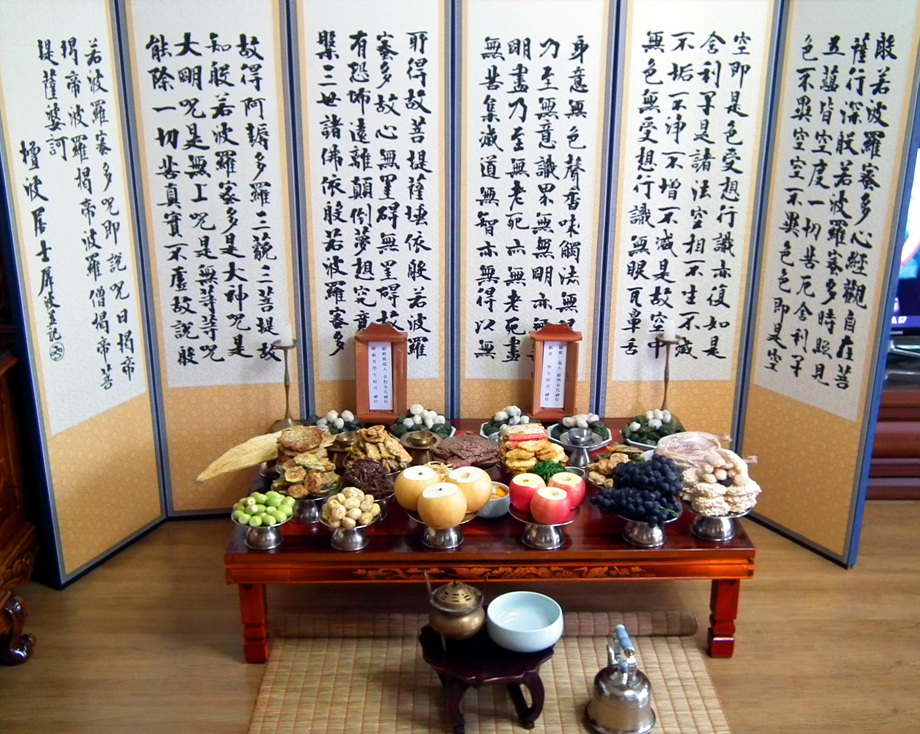 般若波羅蜜多心經觀自在菩
薩行深般若波羅蜜多時照見
五蘊皆空度一切苦厄舍利子
色不異空空不異色色即是空
空即是色受想行識亦復如是
舍利子是諸法空相不生不滅
不垢不淨不增不減是故空中
無色無受想行識無眼耳鼻舌
身意無色聲香味觸法無眼
乃至無意識界無無明亦無
明盡乃至無老死亦無老死盡
無苦集滅道無智亦無得以無
所得故菩提薩埵依般若波羅
蜜多故心無罣礙無罣礙故
有恐怖遠離顛倒夢想究竟
槃三世諸佛依般若波羅蜜多
故得阿耨多羅三藐三菩提故
知般若波羅蜜多是大神呪是
大明呪是無上呪是無等等呪
能除一切苦真實不虛故說般
若波羅蜜多呪即說呪曰揭帝
揭帝波羅揭帝波羅僧揭帝菩
提薩婆訶
居士